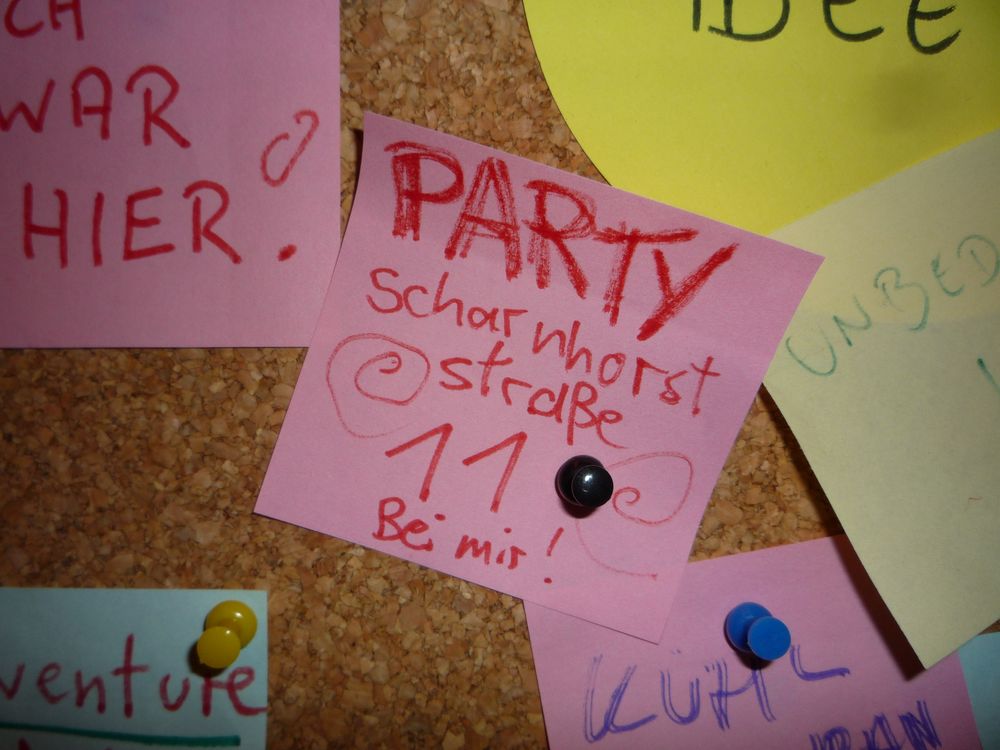 CH
WAR
HIER!
IDEE
PARTY
Scharnhorst
straße
11
Bei mir!
UNBED
venture
KÜHL